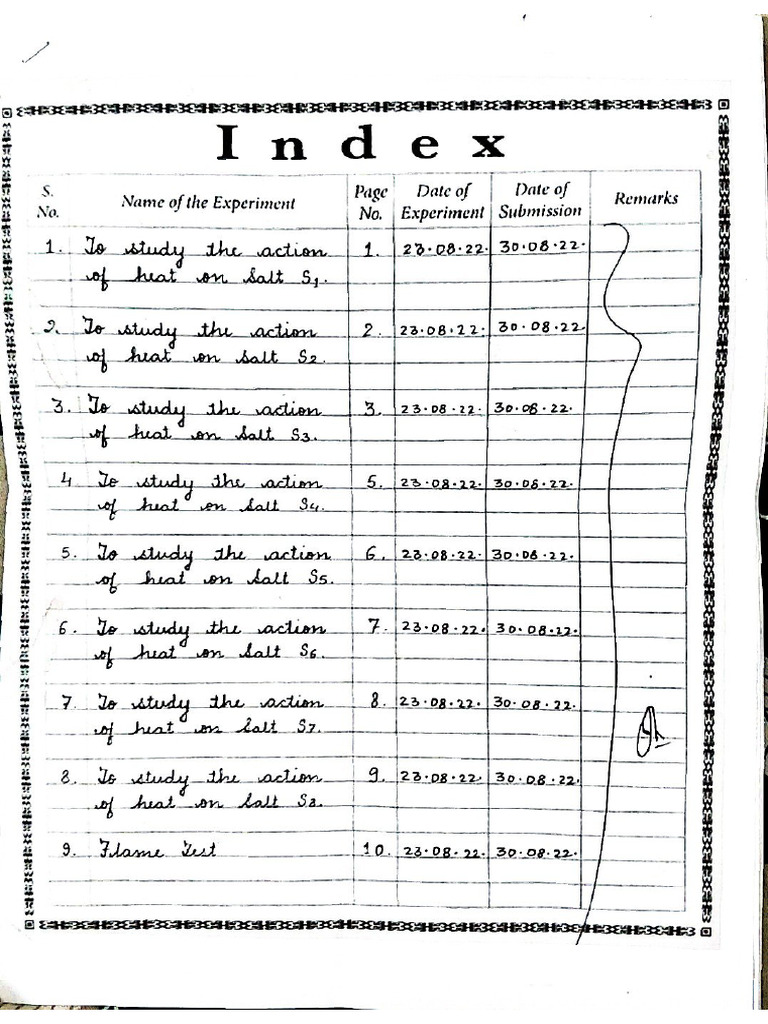 Index
S. No. Name of the Experiment Page No. Date of Experiment Date of Submission Remarks
1. To study the action 1. 23.08.22. 30.08.22.
of heat on Salt S1.
2. To study the action 2. 23.08.22. 30.08.22.
of heat on Salt S2.
3. To study the action 3. 23.08.22. 30.08.22.
of heat on Salt S3.
4 To study the action 5. 23.08.22. 30.08.22.
of heat on Salt S4.
5. To study the action 6. 23.08.22. 30.08.22.
of heat on Salt S5.
6. To study the action 7. 23.08.22. 30.08.22.
of heat on Salt S6.
7. To study the action 8. 23.08.22. 30.08.22.
of heat on Salt S7.
8. To study the action 9. 23.08.22. 30.08.22.
of heat on Salt S8.
9. Flame Test 10. 23.08.22. 30.08.22.